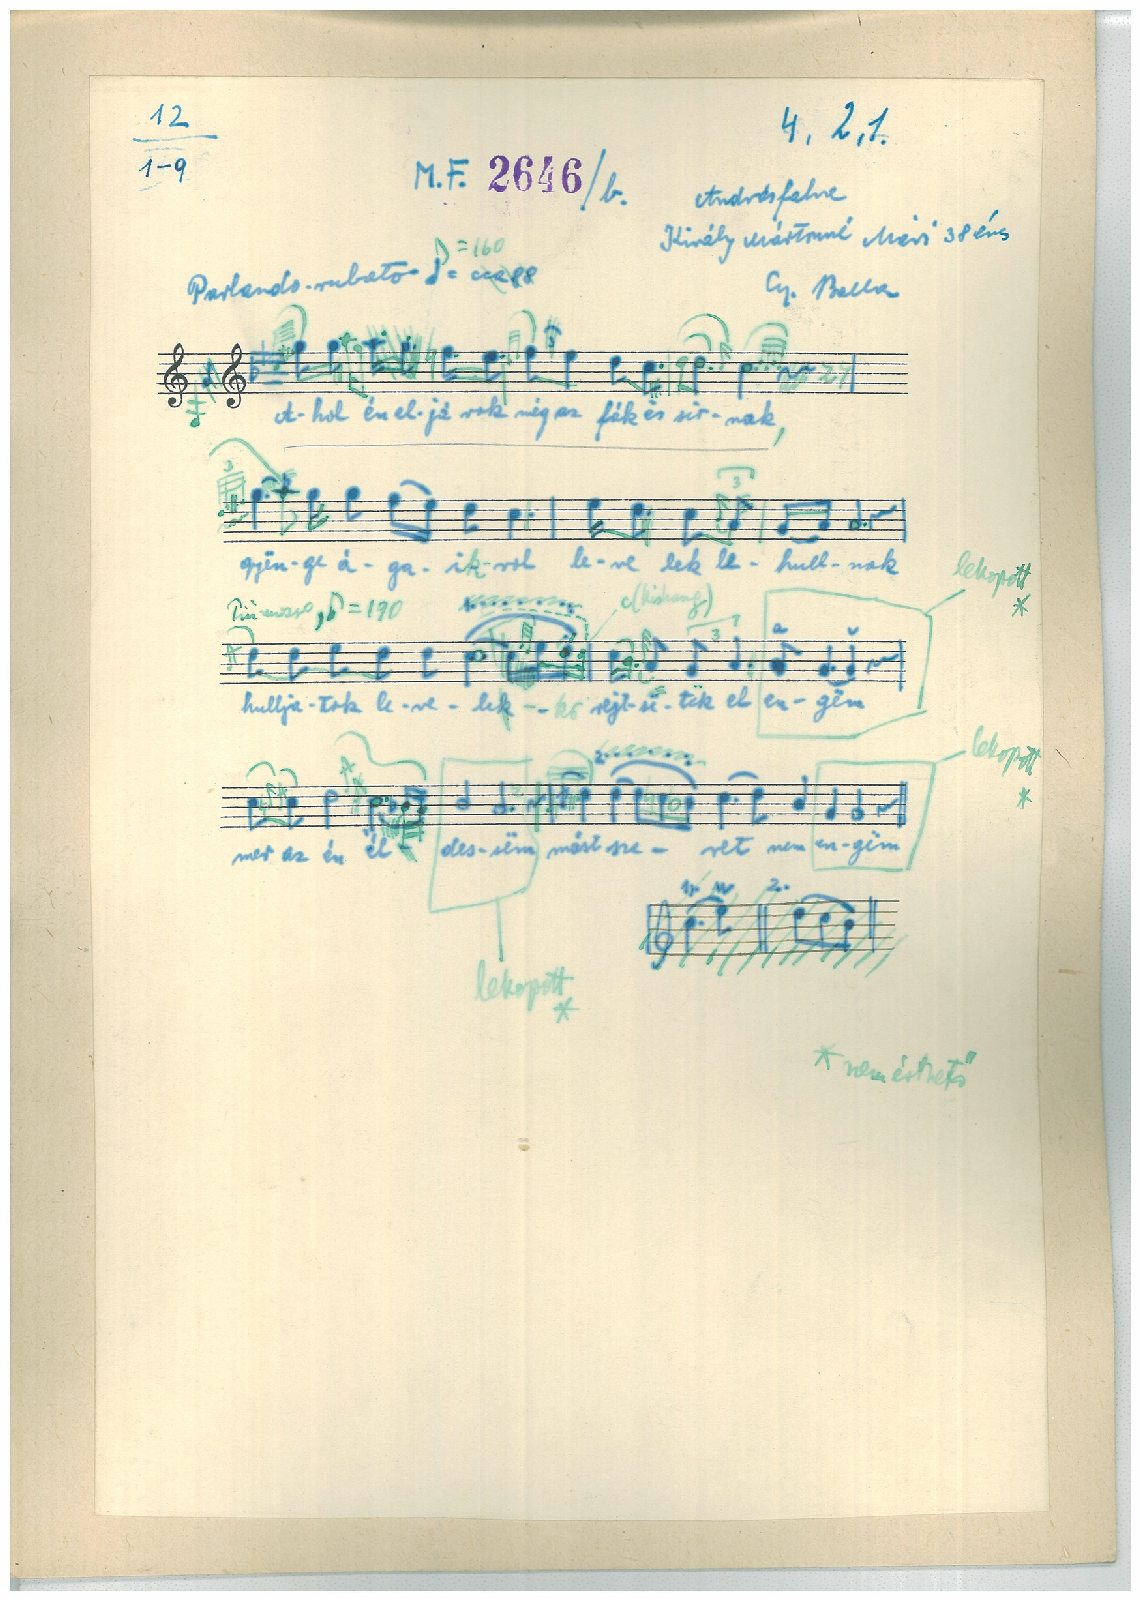 12
1-9
4. 2, 1.
M.F. 2646/b.
Andrásfalva
Király Mártonné Mári 38 éves
Gy. Balla
= 160
Parlando-rubato = cca 88
A-hol én el-já rok még az fák és sir-nak,
3
3
gyën-ge á-ga-ik-ról le-ve lek le-hull-nak
lekopott
*
Più mosso, = 190
c (kishang)
3
a
hullja-tok le-ve-lek -- kë rejt-së-tëk el en-gëm
lekopott
*
2.
mer az én él-des-sëm mást sze-ret nem en-gëm
1. 2.
lekopott
*
* nem érthető